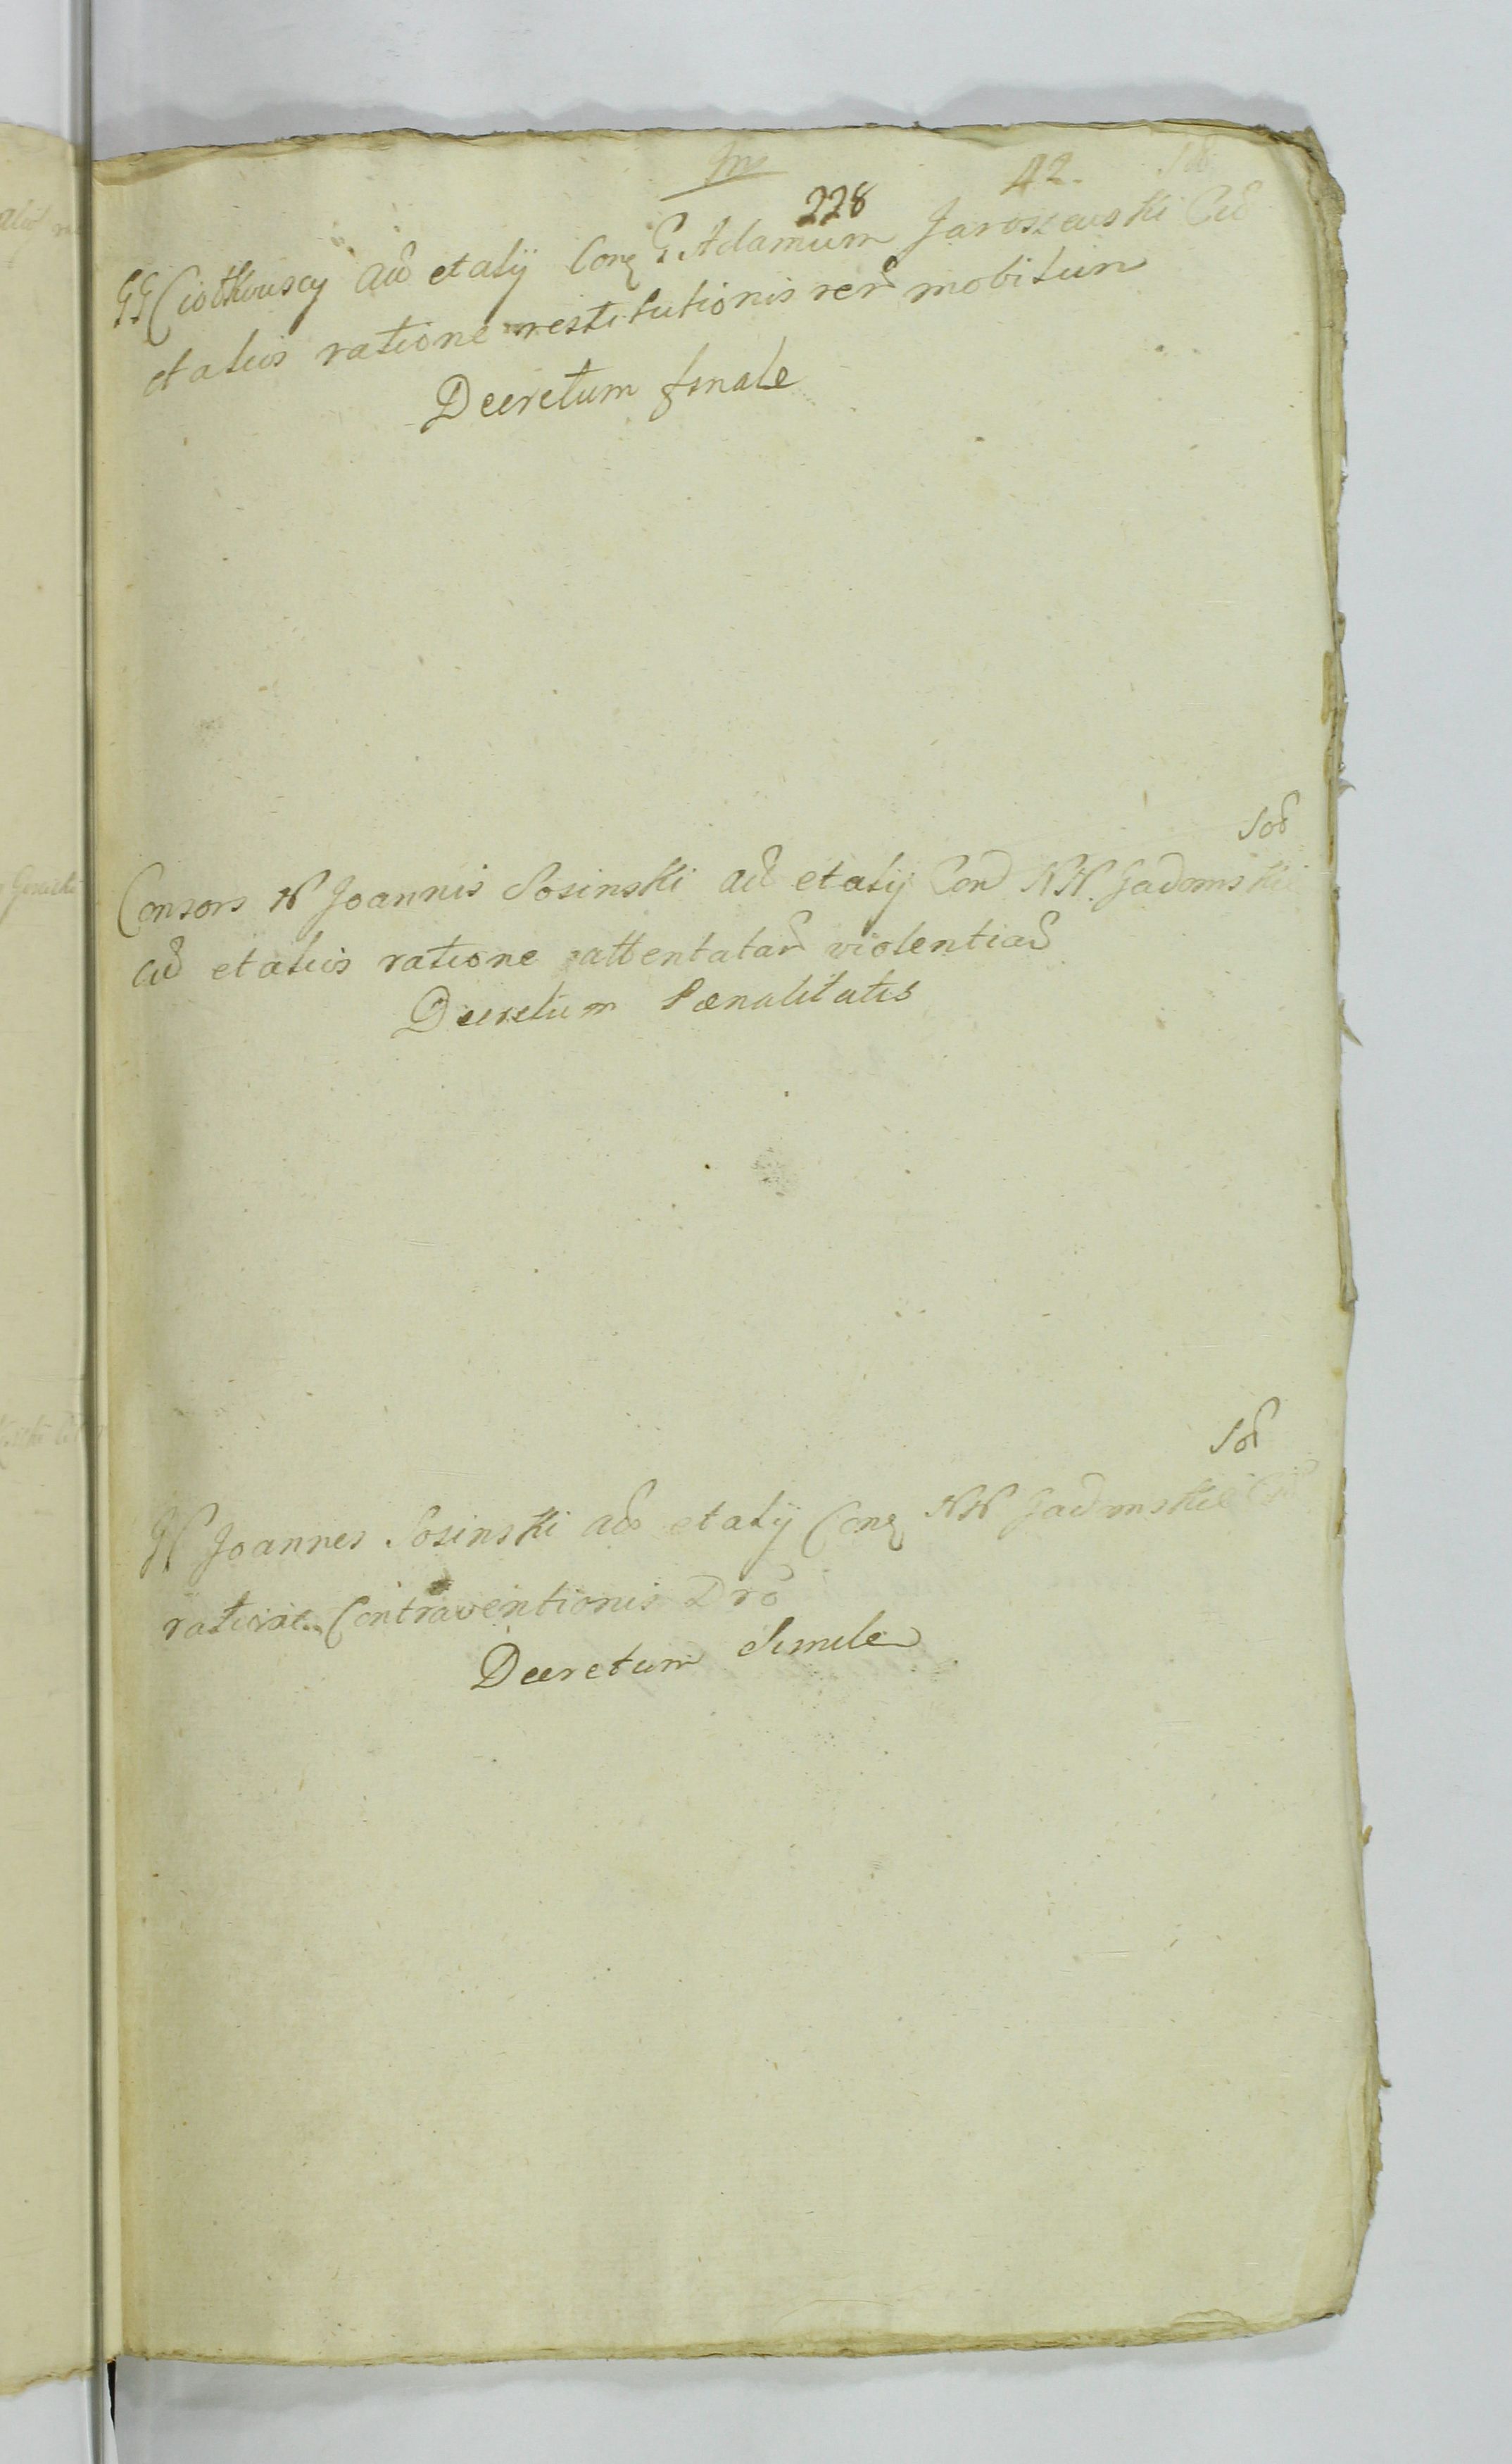 228
42.
GG Ciołkowscy Act et alij Conq G Adamum Jaroszewski Cit
et aliis ratione restitutionis rer mobilium
Decretum finale
Sol
Consors N Joannis Sosinski act et alij Con NN. Gadomskie
cit et aliis ratione attentatar violentiar
Decretum Pœnalitatis
Sol
N Joannes Sosinski act et alij Conq NN Gadomskie Cit
ratione Contraventionis Dro
Decretum Simile